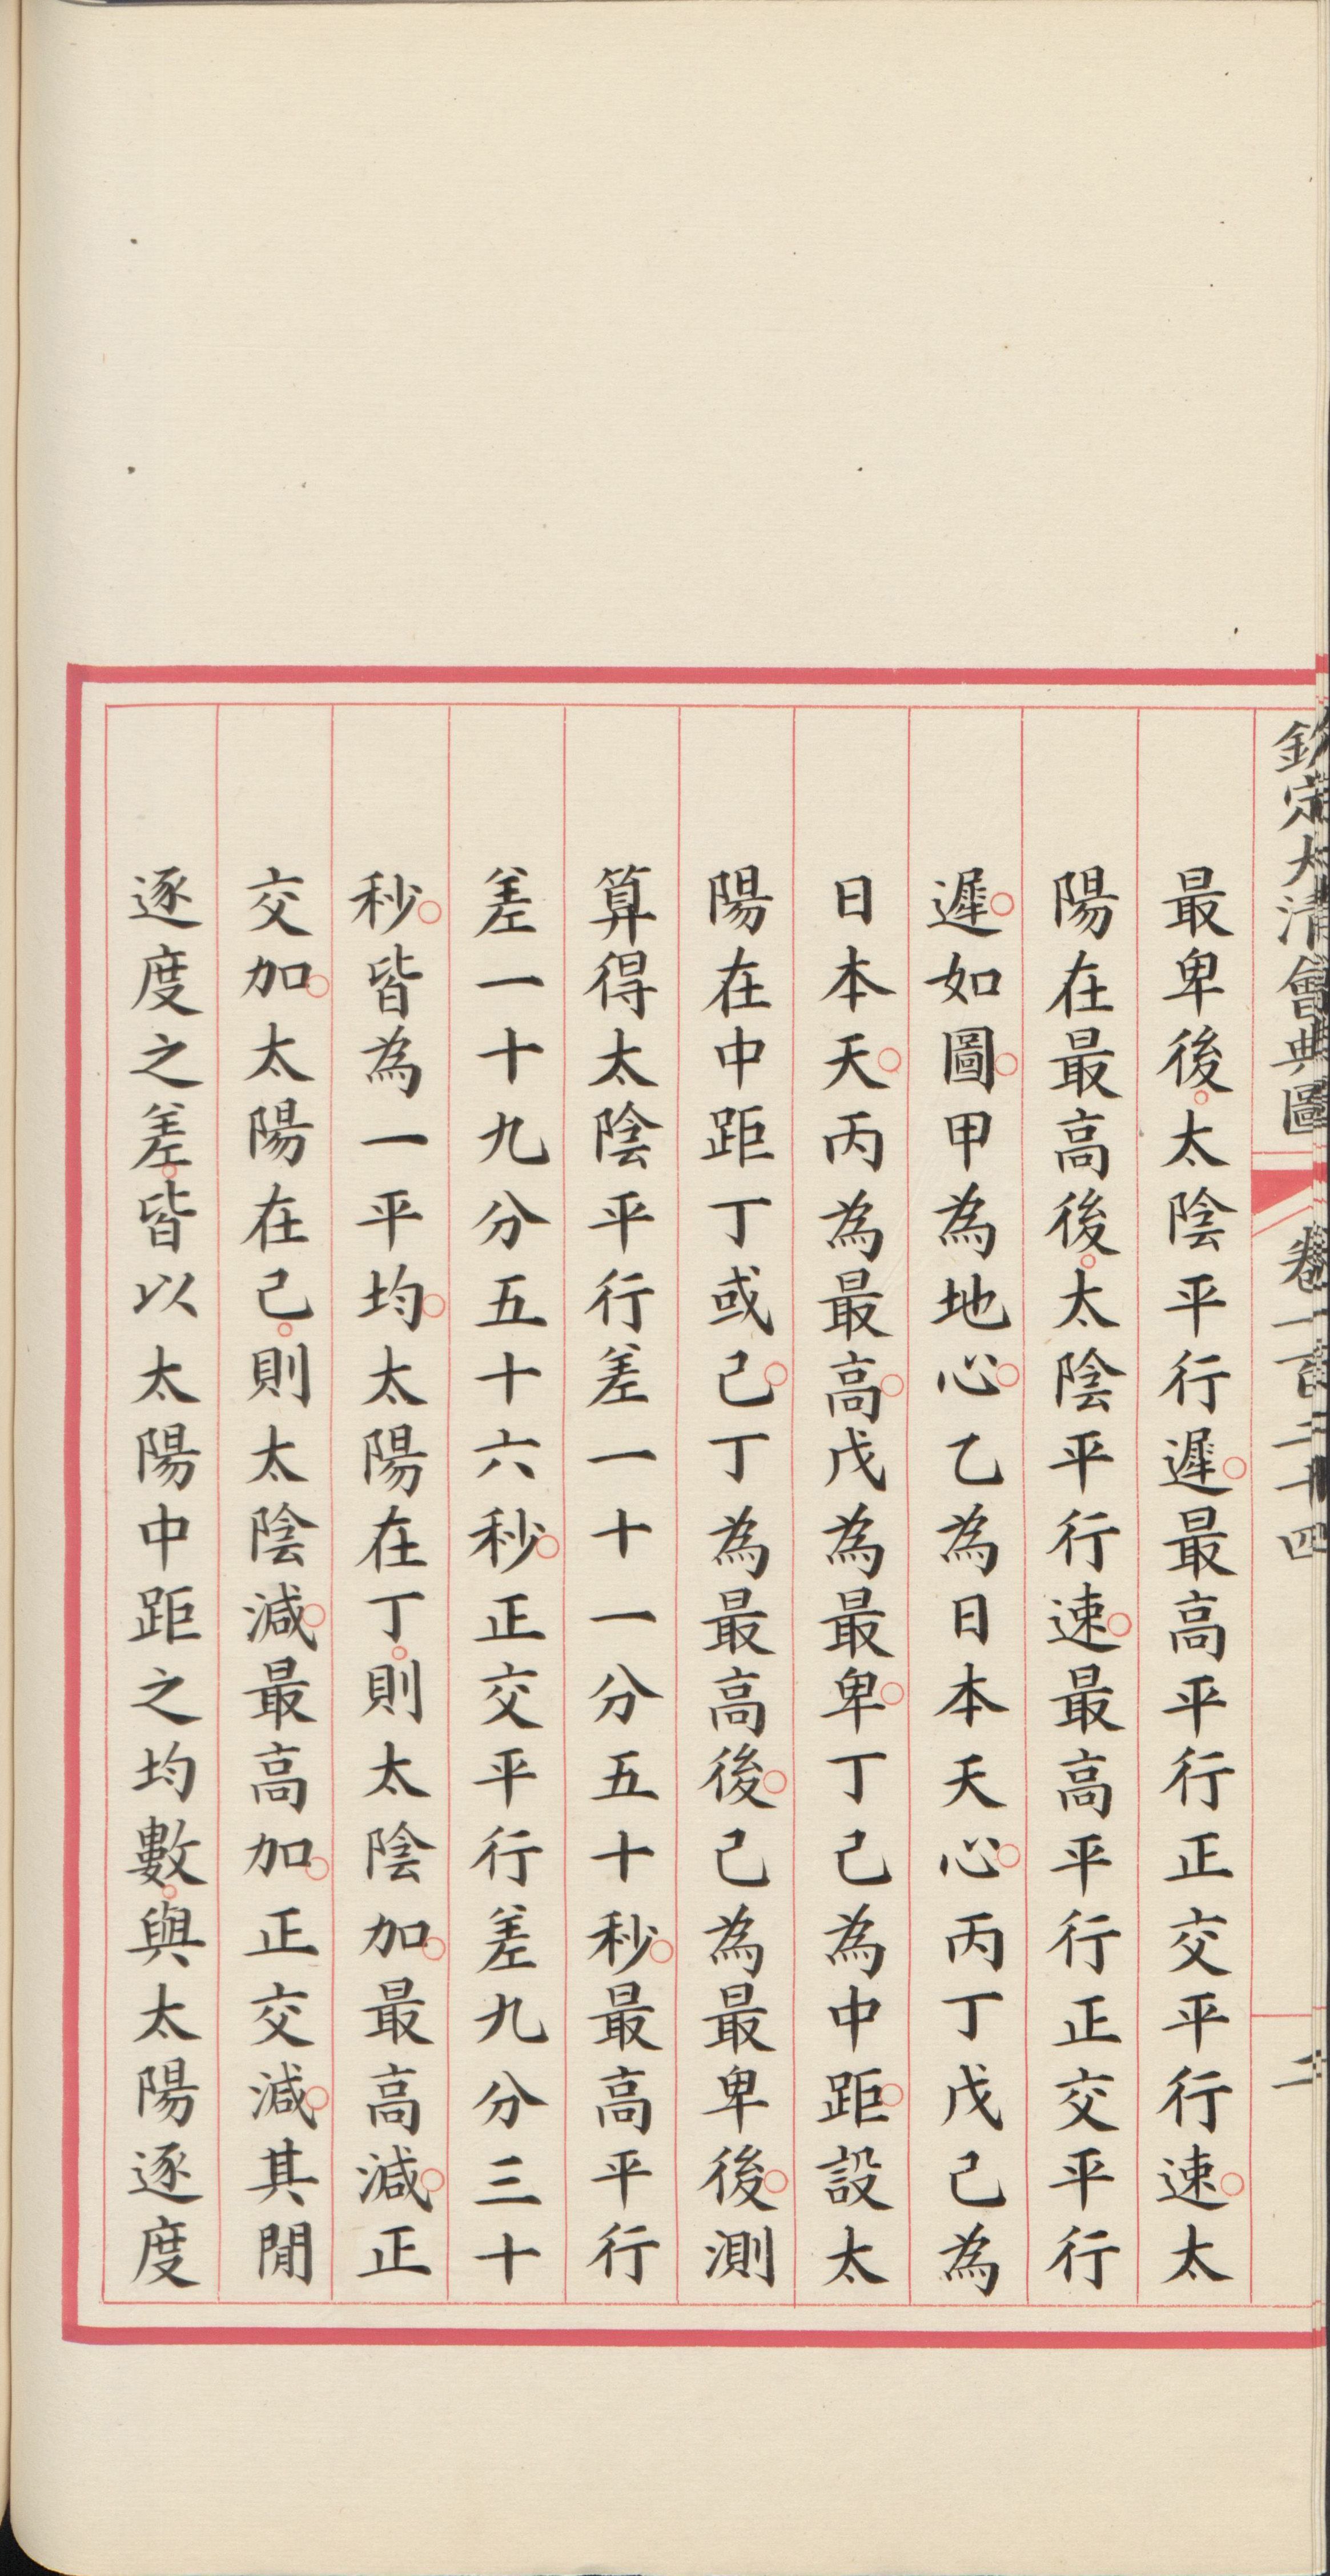 欽定大清會典圖 卷一百二十四 二
最卑後。太陰平行遲。最高平行正交平行速。太
陽在最高後。太陰平行速。最高平行正交平行
遲。如圖。甲為地心。乙為日本天心。丙丁戊己為
日本天。丙為最高。戊為最卑。丁己為中距。設太
陽在中距丁或己。丁為最高後。己為最卑後。測
算得太陰平行差一十一分五十秒。最高平行
差一十九分五十六秒。正交平行差九分三十
秒。皆為一平均。太陽在丁。則太陰加。最高減。正
交加。太陽在己。則太陰減。最高加。正交減。其閒
逐度之差。皆以太陽中距之均數。與太陽逐度